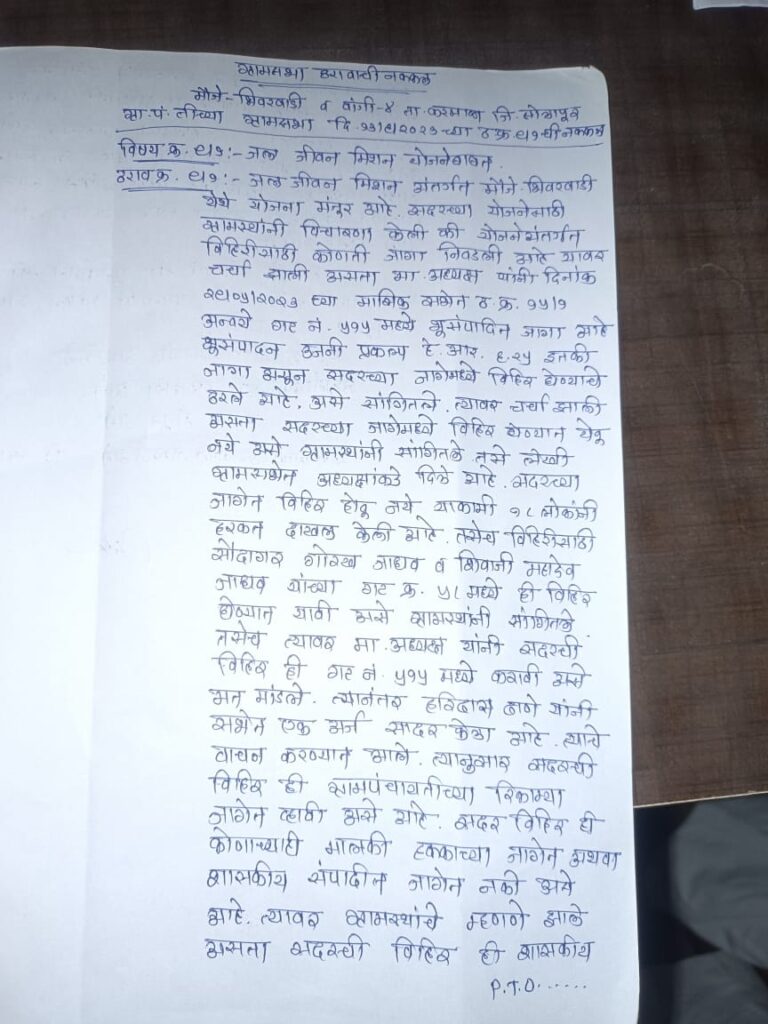 ग्रामसभा ठरावाची नक्कल
मौजे - भिवरवाडी व वांगी-४ ता. करमाळा जि. सोलापूर
ग्रा.पं. तीच्या ग्रामसभा दि. च्या ठ.क्र. ची नक्कल
विषय क्र. :- जल जीवन मिशन योजनेबाबत.
ठराव क्र. :- जल जीवन मिशन अंतर्गत मौजे भिवरवाडी
येथे योजना मंजूर आहे. सदरच्या योजनेसाठी
ग्रामस्थांनी विचारणा केली की योजनेअंतर्गत
विहिरीसाठी कोणती जागा निवडली आहे यावर
चर्चा झाली असता मा. अध्यक्ष यांनी दिनांक
२९/०५/२०२३ च्या मासिक सभेत ठ.क्र. १५/१
अन्वये गट नं. ५१५ मध्ये भूसंपादित जागा आहे
भूसंपादन उजनी प्रकल्प हे. आर. ६.२५ इतकी
जागा असून सदरच्या जागेमध्ये विहिर घेण्याचे
ठरले आहे. असे सांगितले. त्यावर चर्चा झाली
असता सदरच्या जागेमध्ये विहिर घेण्यात येवू
नये असे ग्रामस्थांनी सांगितले तसे लेखी
ग्रामसभेत अध्यक्षांकडे दिले आहे. सदरच्या
जागेत विहिर होवू नये याकामी १८ लोकांनी
हरकत दाखल केली आहे. तसेच विहिरीसाठी
सौदागर गोरख जाधव व शिवाजी महादेव
जाधव यांच्या गट क्र. ५८ मध्ये ही विहिर
घेण्यात यावी असे ग्रामस्थांनी सांगितले.
तसेच त्यावर मा. अध्यक्ष यांनी सदरची
विहिर ही गट नं. ५१५ मध्ये करावी असे
मत मांडले. त्यानंतर हरिदास यांनी
सभेत एक अर्ज सादर केला आहे. त्याचे
वाचन करण्यात आले. त्यानुसार सदरची
विहिर ही ग्रामपंचायतीच्या रिकाम्या
जागेत व्हावी असे आहे. सदर विहिर ही
कोणाच्याही मालकी हक्काच्या जागेत अथवा
शासकीय संपादीत जागेत नको असे
आहे. त्यावर ग्रामस्थांचे म्हणणे झाले
असता सदरची विहिर ही शासकीय
P.T.O......